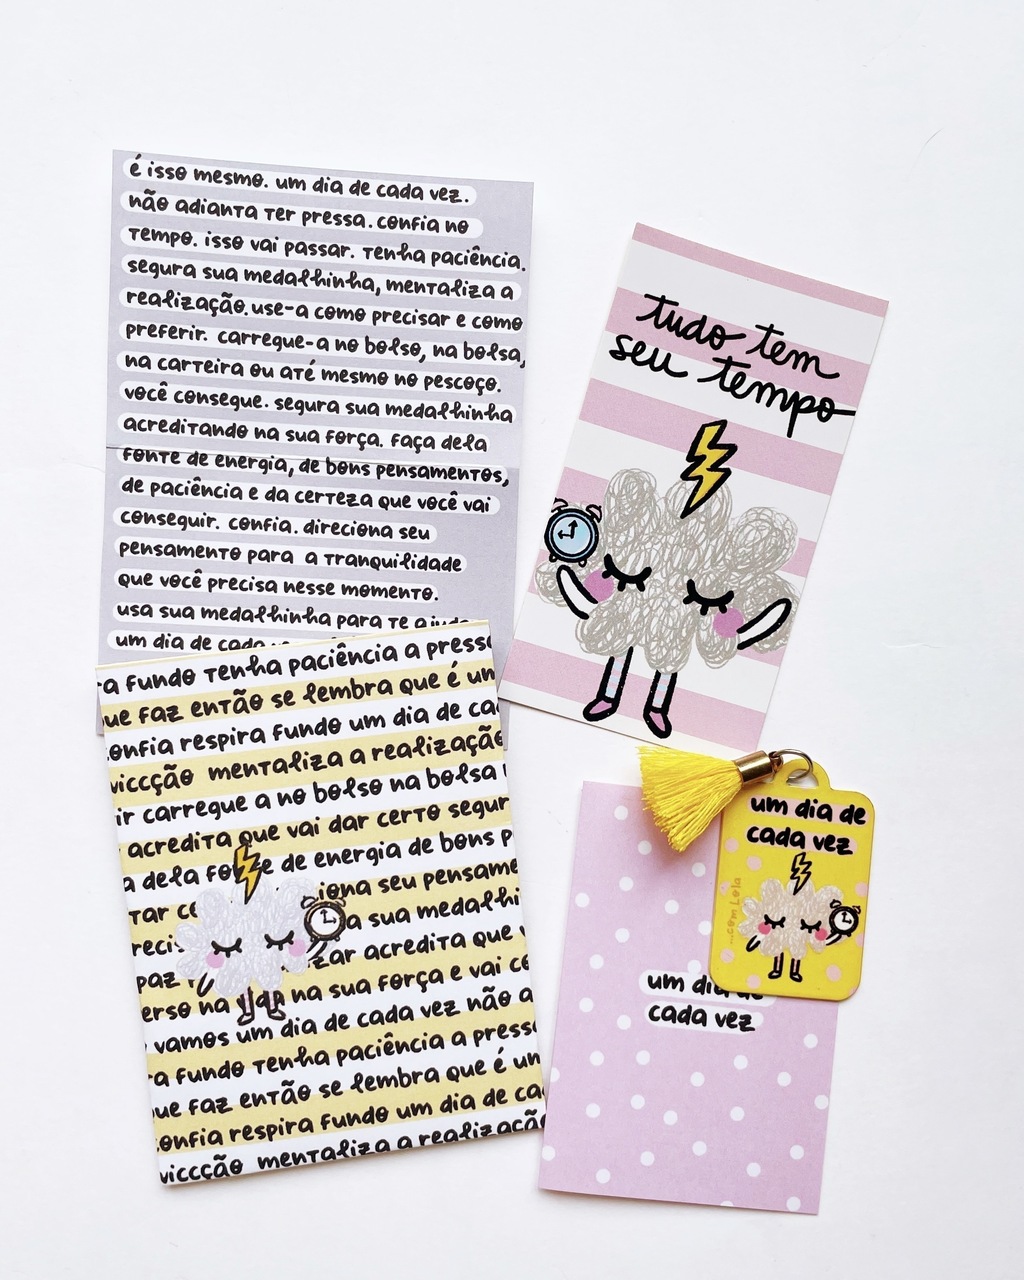 é isso mesmo. um dia de cada vez.
não adianta ter pressa. confia no
tempo. isso vai passar. tenha paciência.
segura sua medalhinha, mentaliza a
realização. use-a como precisar e como
preferir. carregue-a no bolso, na bolsa,
na carteira ou até mesmo no pescoço.
você consegue. segura sua medalhinha
acreditando na sua força. faça dela
fonte de energia, de bons pensamentos,
de paciência e da certeza que você vai
conseguir. confia. direciona seu
pensamento para a tranquilidade
que você precisa nesse momento.
usa sua medalhinha para te
um dia de cada
tudo tem
seu tempo
a fundo tenha paciência a
faz então se lembra que é
respira fundo um dia de
mentaliza a realização
carregue a no bolso na bolsa
acredita que vai dar certo
a dela de energia de bons
seu pensame
a sua
acredita que
paz
na na sua força e vai
vamos um dia de cada vez não
a fundo tenha paciência a
faz então se lembra que é
respira fundo um dia de
mentaliza a realização
um dia de
cada vez
...com Lela
um dia de
cada vez